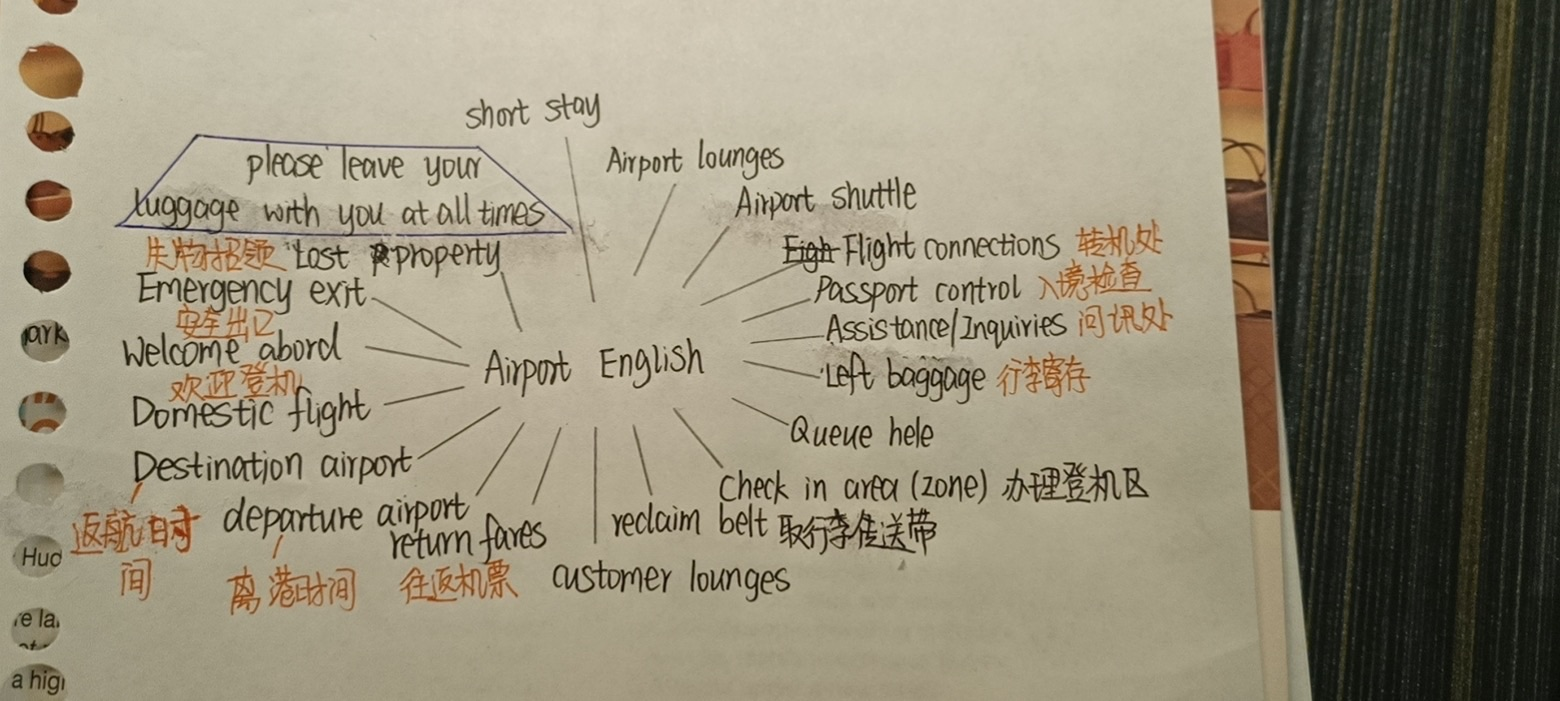 short stay
please leave your
luggage with you at all times
Airport lounges
Airport shuttle
失物招领 Lost property
Flight connections 转机处
Emergency exit
安全出口
Passport control 入境检查
Welcome abord
欢迎登机
Assistance/Inquiries 问讯处
Airport English
Left baggage 行李寄存
Domestic flight
Queue hele
Destination airport
返航时
间
Check in area (zone) 办理登机区
departure airport
离港时间
reclaim belt 取行李传送带
return fares
往返机票
customer lounges
ark
Huo
re la
a higl